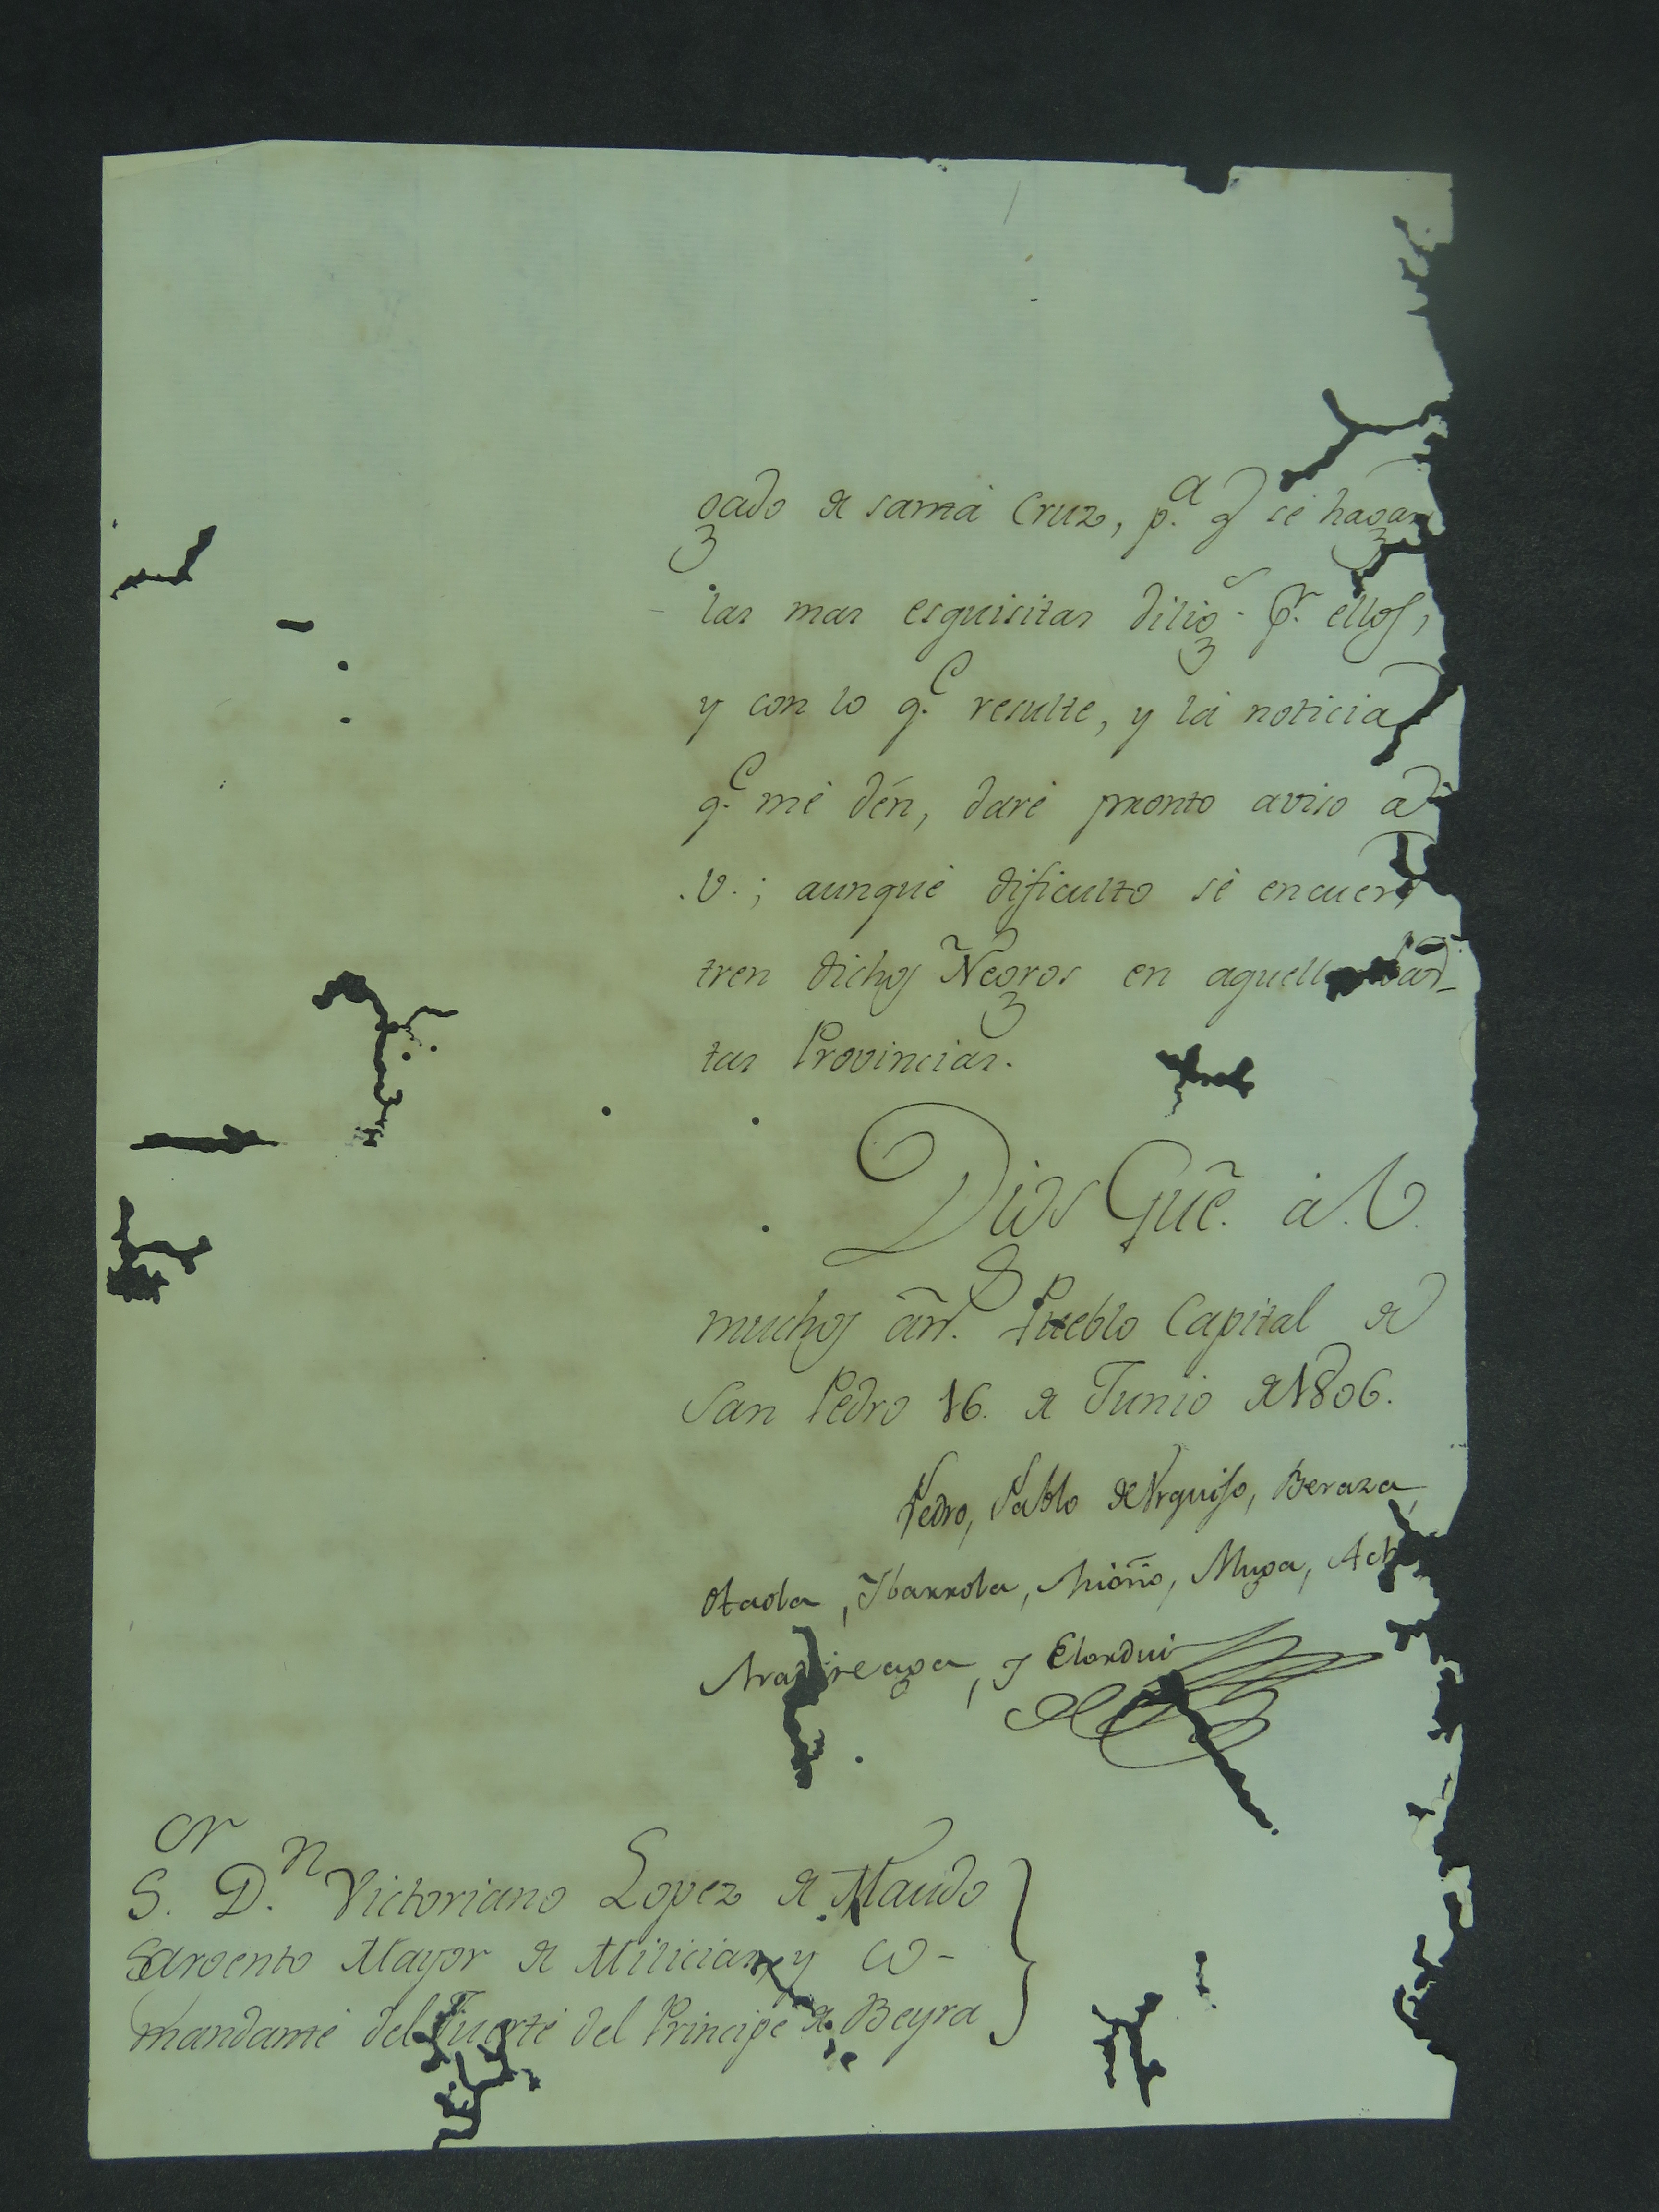 gado de santa Cruz, p.ª q.e se hagan
las mas esquisitas dilig.s p.r ellos,
y con lo q.e resulte, y la noticia
q.e me dén, daré pronto aviso a
V.; aunque dificulto se encuen,
tren dichos Negros en aquellas
tas Provincias.
Dios Gũe. a V.
muchos añ.s Pueblo Capital de
San Pedro 16. de Junio de 1806.
Pedro, Pablo de Vrquiso, Beraza,
Otaola, Ybarrola, Muga,
y Elordui
S.or D.n Victoriano Lopez de Maudo
Sargento Mayor de Milicias, y Co-
mandante del Fuerte del Principe de Beyra